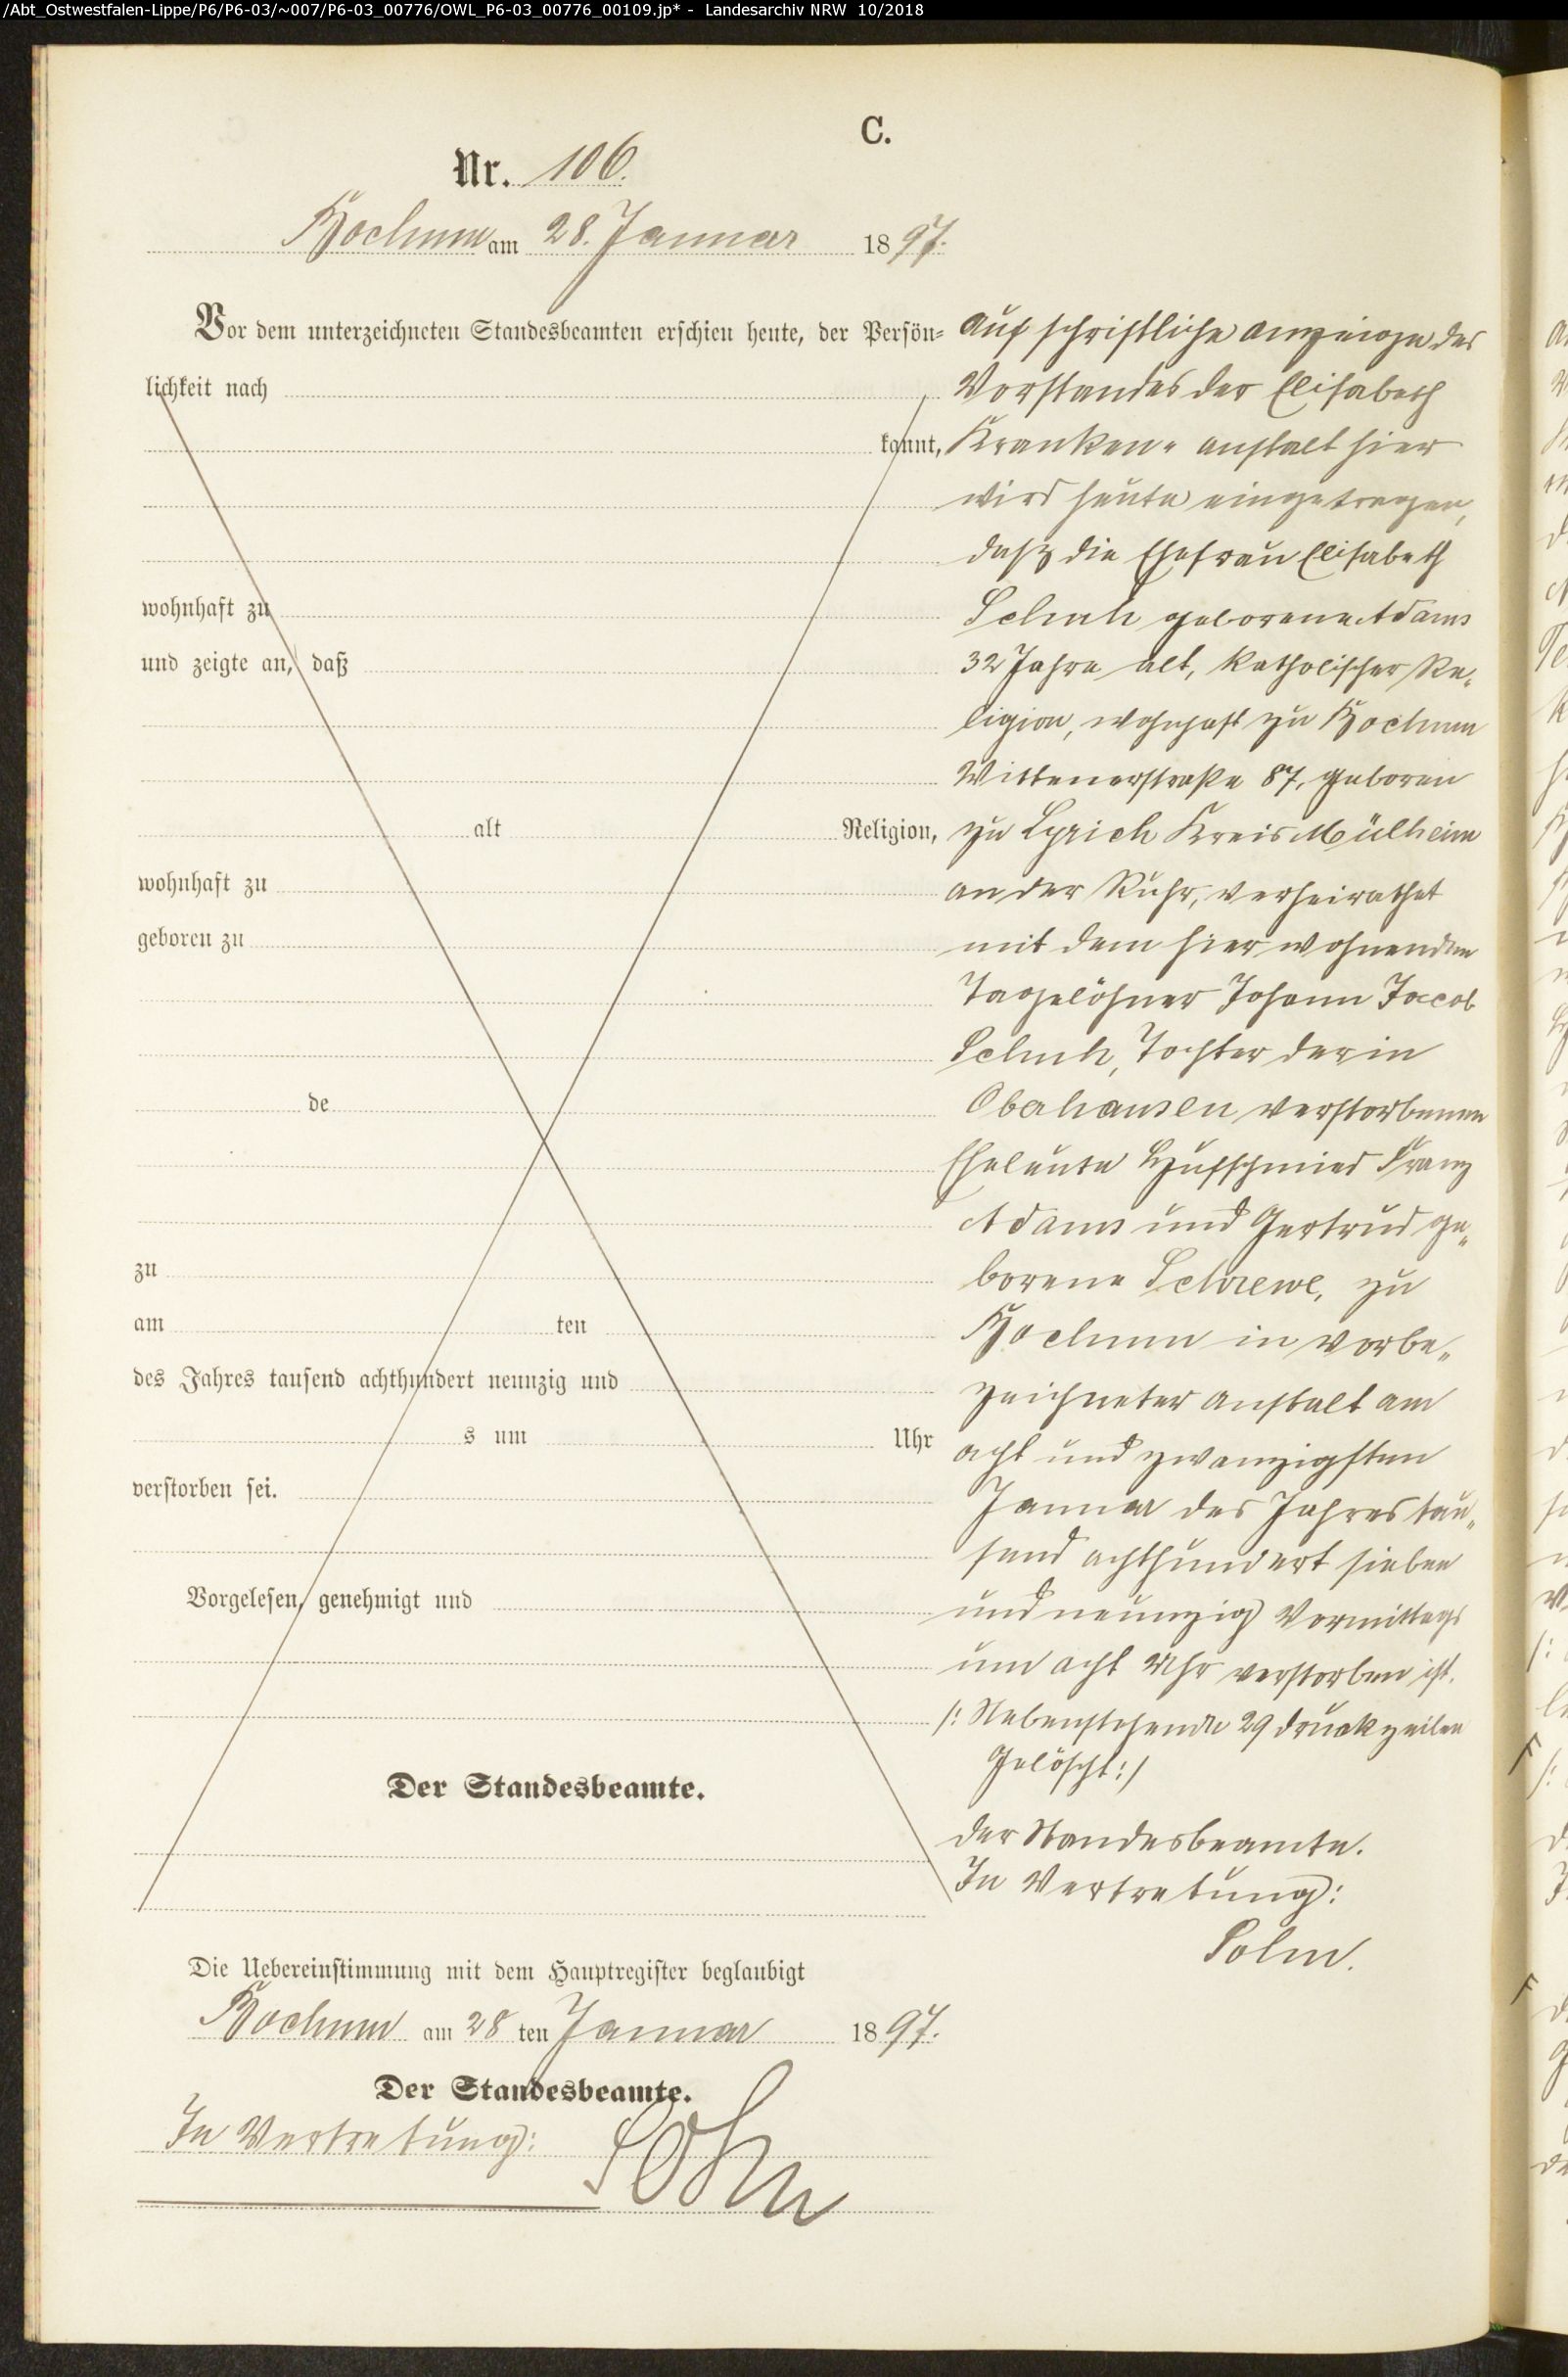 /Abt_Ostwestfalen-Lippe/P6/P6-03/~007/P6-03_00776/OWL_P6-03_00776_00109.jp* - Landesarchiv NRW 10/2018
C.
Nr. 106.
Bochum am 28. Januar 1897.
Vor dem unterzeichneten Standesbeamten erschien heute, der Persön-
lichkeit nach
kannt,
wohnhaft zu
und zeigte an, daß
alt Religion,
wohnhaft zu
geboren zu
de
zu
am ten
des Jahres tausend achthundert neunzig und
s um Uhr
verstorben sei.
Vorgelesen, genehmigt und
Der Standesbeamte.
Auf schriftliche Anzeige des
Vorstandes der Elisabeth
Kranken- anstalt hier
wird heute eingetragen,
daß die Ehefrau Elisabeth
Schuh geborene Adams
32 Jahre alt, katholischer Re-
ligion, wohnhaft zu Bochum
Wittenerstraße 87, geboren
zu Lyrich Kreis Mülheim
an der Ruhr, verheirathet
mit dem hier wohnenden
Tagelöhner Johann Jacob
Schuh, Tochter der in
Oberhausen verstorbenen
Eheleute Hufschmied Franz
Adams und Gertrud ge-
borene Schrewe, zu
Bochum in vorbe-
zeichneter Anstalt am
acht und zwanzigsten
Januar des Jahres tau-
send achthundert sieben
und neunzig Vormittags
um acht Uhr verstorben ist.
/: Nebenstehende 29 Druckzeilen
gelöscht :/
Der Standesbeamte.
In Vertretung:
Die Uebereinstimmung mit dem Hauptregister beglaubigt
Bochum am 28 ten Januar 1897.
Der Standesbeamte.
In Vertretung: